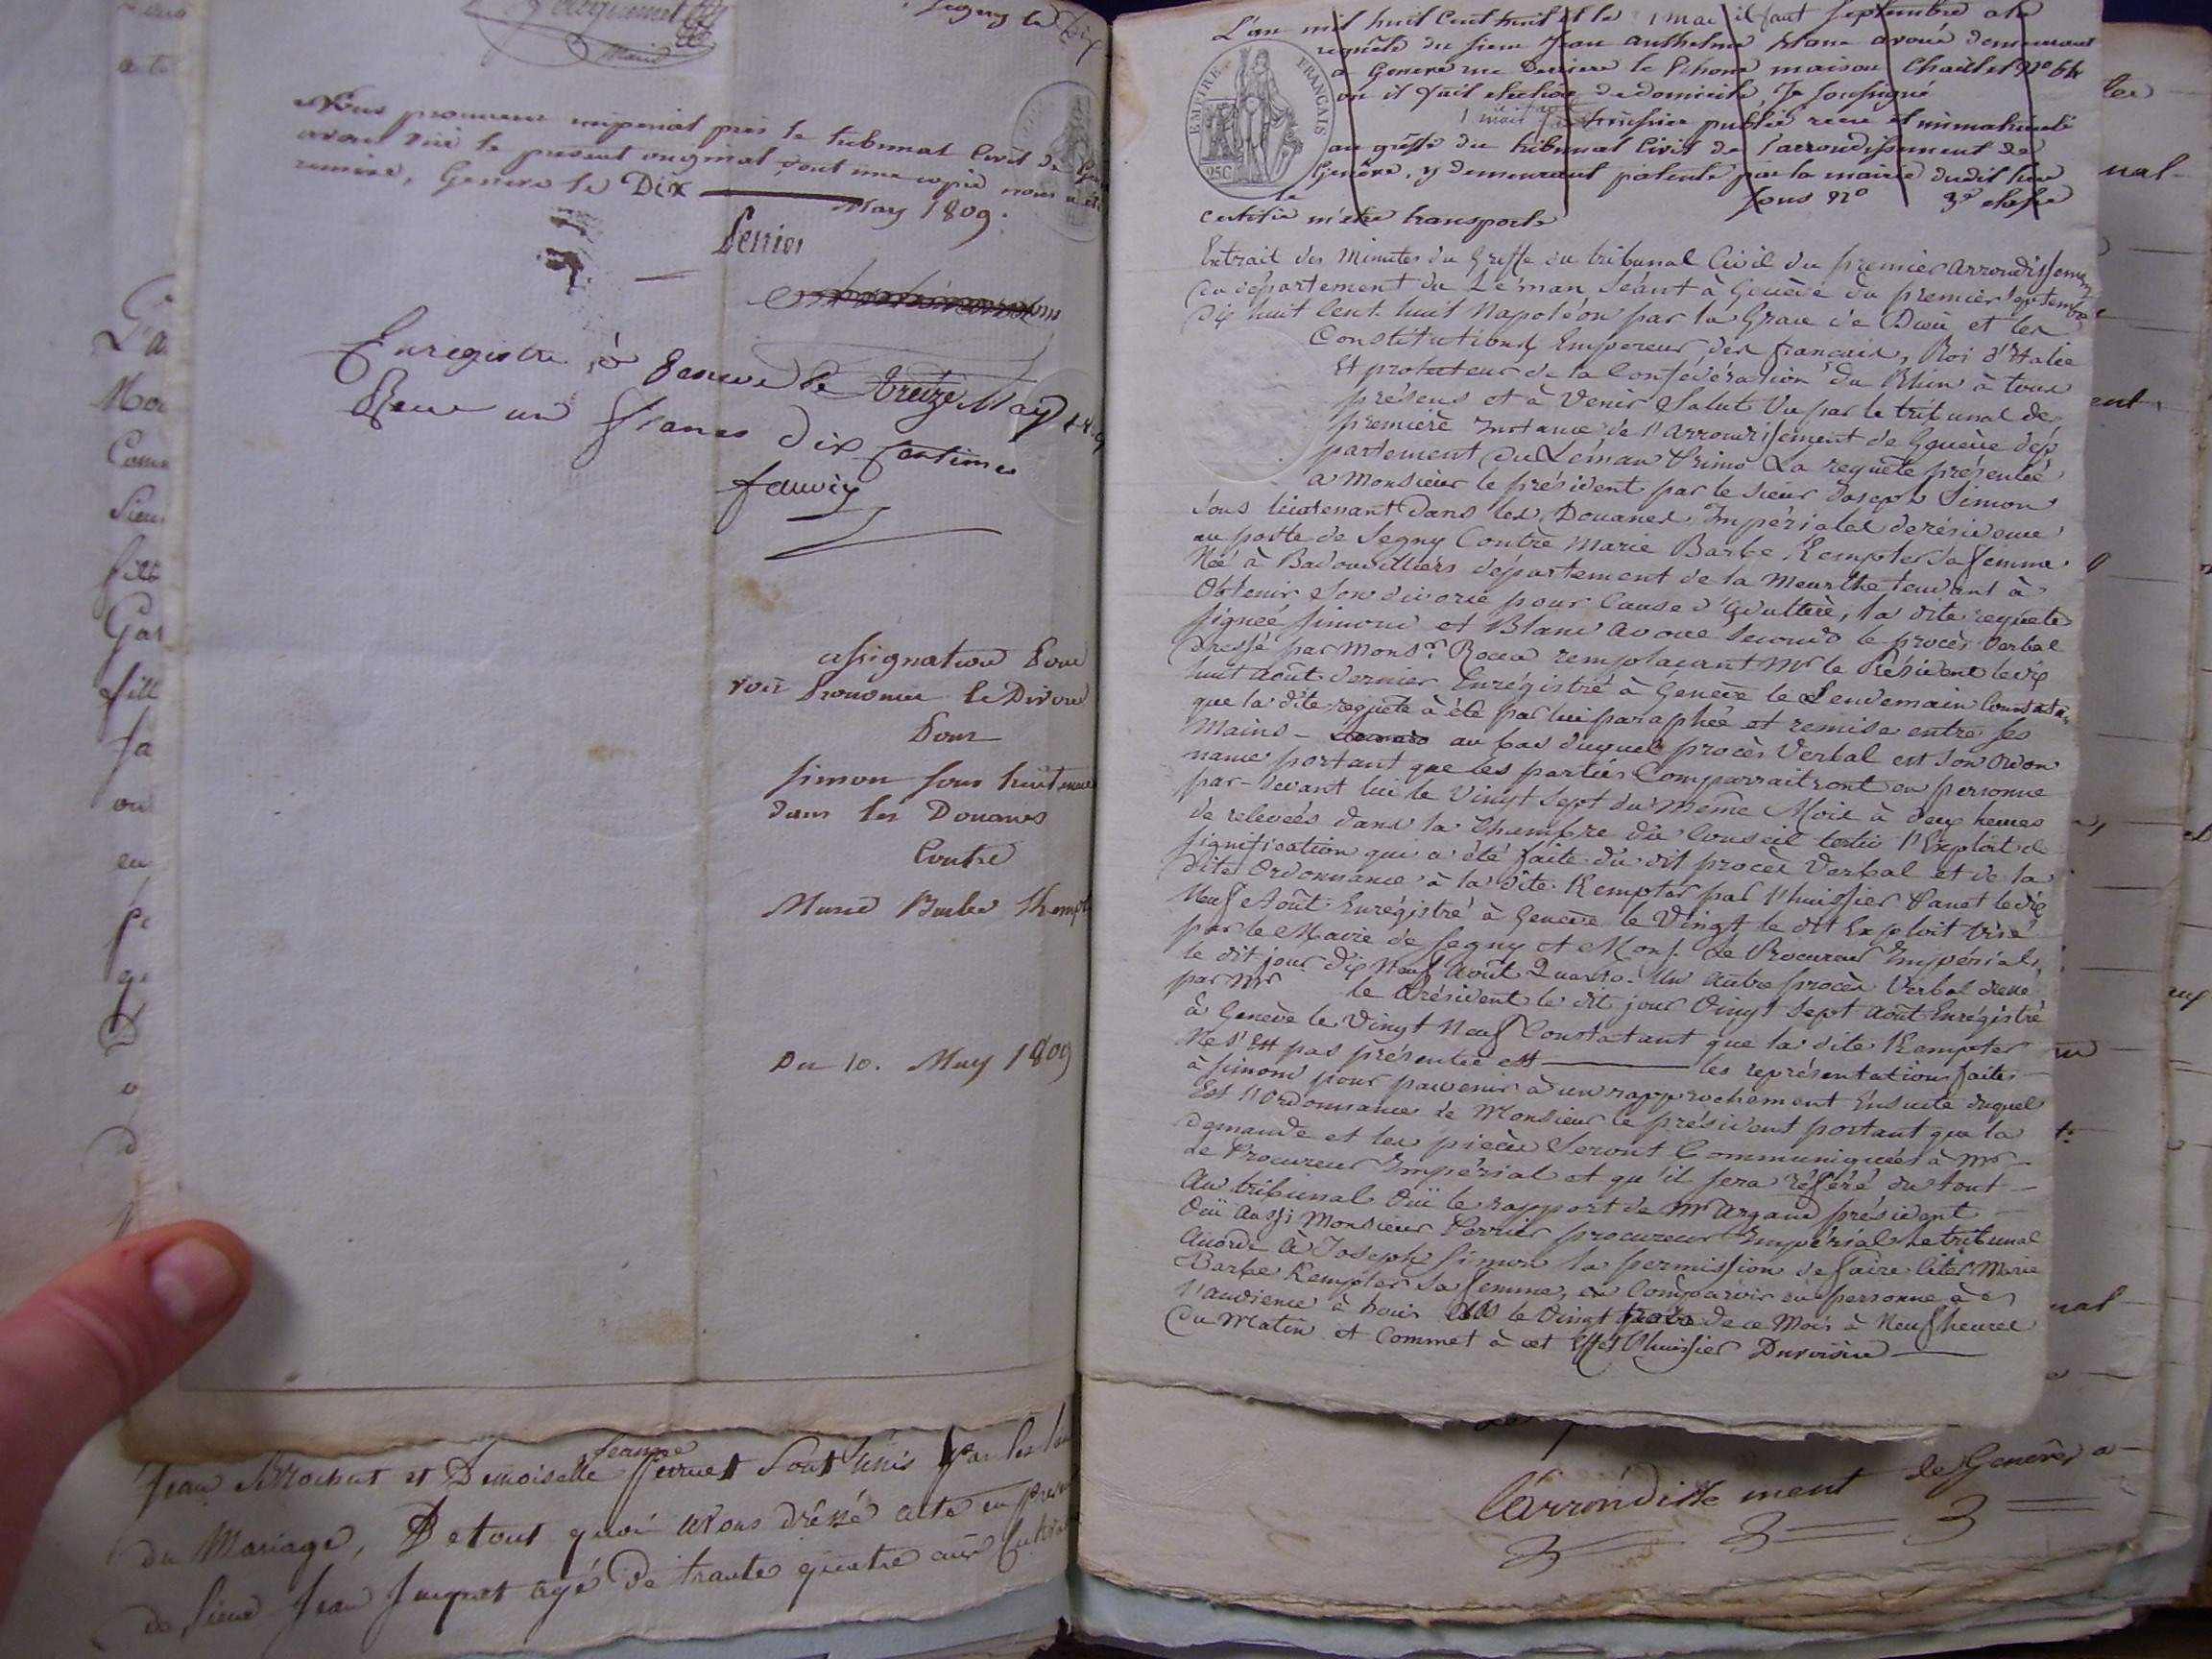 Segny le Dix
Maire
Nous procureur imperial près le tribunal Civil de
avons visé le present original dont une copie nous a été
remise, Geneve le Dix
May 1809.
Perrier
Enregistré à Geneve le treize May
Reçu un franc dix centimes
assignation Pour
voir Prononcer le Divorce
Pour
Simon sous lieutenant
dans les Douanes
Contre
Marie Barbe Kempt
Du 10. May 1809
Jean Brochut et Demoiselle Jeanne sont Unis par les
du Mariage, De tout quoi avons dréssé acte en
de Sieur Jean Juquet agé de trante quatre ans
L'an mil huit cent huit et le 1 mai il faut Septembre a la
requête du sieur Jean Anthelme Blanc avoué demeurant
a Geneve rue Derriere le Rhone maison N°
ou il fait election de domicile Je soussigné
1 mai huissier public reçu et immatriculé
au greffe du tribunal Civil de l'arrondissement de
Genève, y demeurant patenté par la mairie dudit lieu
le sous N° 3e classe
certifie m'être transporté
EMPIRE FRANÇAIS
25C
Extrait des Minutes du Greffe du tribunal Civil du premier arrondissement
du département du Léman Séant à Genève du premier Septembre
Dix huit Cent huit Napoléon par la Grace de Dieu et les
Constitutions Empereur des français, Roi d'Italie
Et protecteur de la Confédération du Rhin à tous
présens et à Venir Salut Vu par le tribunal de
première Instance de l'arrondissement de Genève dép
partement du Léman Primo La requête présentée
a Monsieur le président par le sieur Joseph Simon
sous lieutenant dans les Douanes Impériales de résidence
au poste de Segny Contre Marie Barbe Kempter sa femme
Née à Badouvilliers département de la Meurthe tendant à
Obtenir son divorce pour Cause d'Adultère, la dite requête
signée Simon et Blanc avoué Secundo le procès Verbal
dressé par Monsr. Rocca remplaçant Mr le Président le dix
huit août dernier Enrégistré à Genève le Lendemain Constatan
que la dite requête à été par lui paraphée et remise entre ses
Mains - au bas duquel procès Verbal est son Ordon
nance portant que les parties Comparraitront en personne
par-devant lui le Vingt Sept du même Mois à deux heures
de relevées dans la Chambre du Conseil tertio l'Exploit de
signification qui a été faite du dit procès Verbal et de la
dite Ordonnance à la dite Kempter par l'huissier Panet le dix
Neuf Août Enrégistré à Geneve le Vingt le dit Exploit visé
par le Maire de Segny et Mons. Le Procureur Impérial
le dit jour dix Neuf Août Quarto. Un autre procès Verbal dressé
par Mr le Président le dit jour Vingt Sept Août Enrégistré
à Genève le Vingt Neuf Constatant que la dite Kempter
Ne s'Est pas présentée est les représentations faites
à Simon pour parvenir à un rapprochement Ensuite duquel
Est l'Ordonnance de Monsieur le président portant que la
demande et les pièces Seront Communiquées à Mr
Le Procureur Impérial et qu'il sera référé du tout
Au tribunal Ouï le rapport de Mr Argand président
Ouï Aussi Monsieur Perrier procureur Impérial Le tribunal
Accorde à Joseph Simon la permission de faire Citer Marie
Barbe Kempter sa femme, à Comparoir en personne à
l'audience à huis clos le Vingt trois de ce Mois à Neuf heures
du Matin et Commet à cet Effet l'huissier Duroisin
L'arrondisse ment de Genève a